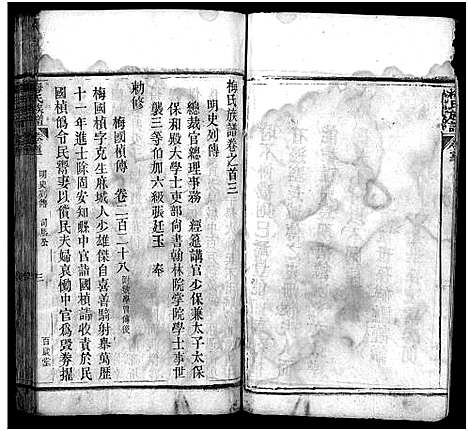 梅氏族譜卷之首三
明史列傳
總裁官總理事務 經筵講官少保兼太子太保
保和殿大學士吏部尚書翰林院掌院學士事世
襲三等伯加六級張廷玉 奉
勅修
梅國楨傳 卷二百二十八
梅國楨字克生麻城人少雄傑自喜善騎射舉萬歷
十一年進士除固安知縣中官詣國楨請收責於民
國楨偽令民鬻妻以償民夫婦哀慟中官為毀券擢
梅氏族譜
明史列傳
三
百歲堂
梅氏族譜